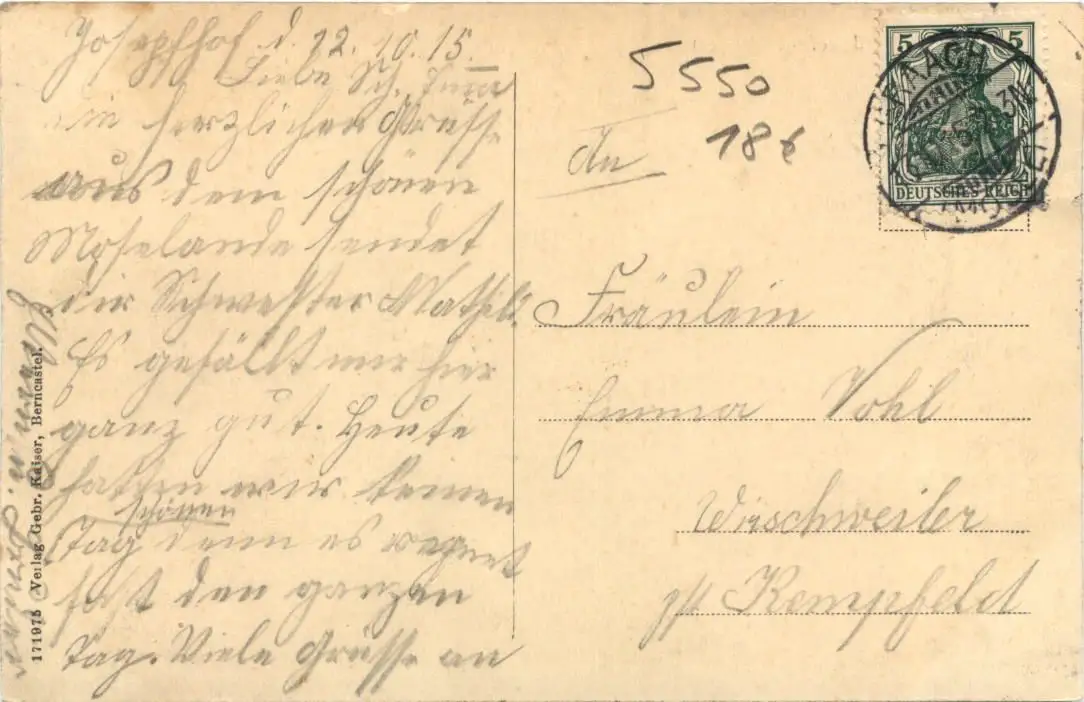 Josephshof d. 12.10.15.
Liebe Sch. Emma
die herzlichen Grüsse
aus dem schönen
Moselande sendet
dir Schwester Mathild.
Es gefällt mir hier
ganz gut. Heute
hatten wir keinen
schönen
Tag denn es regnet
fast den ganzen
Tag. Viele Grüsse an
171975 Verlag Gebr. Kaiser, Berncastel.
5550
18€
An
5 5
DEUTSCHES REICH
Fräulein
Emma Vohl
Wirschweiler
pst Kempfeld